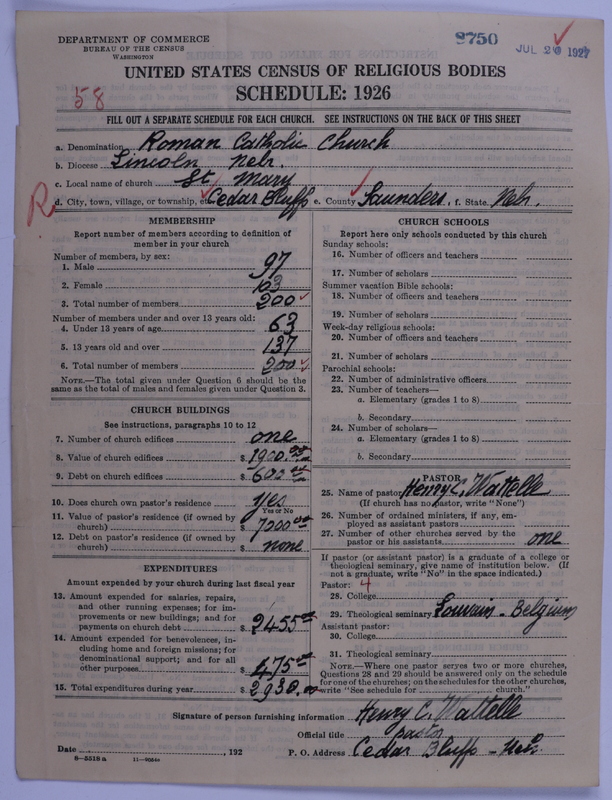 DEPARTMENT OF COMMERCE
BUREAU OF THE CENSUS
WASHINGTON
8750
JUL 20 1927
UNITED STATES CENSUS OF RELIGIOUS BODIES
SCHEDULE: 1926
58
FILL OUT A SEPARATE SCHEDULE FOR EACH CHURCH. SEE INSTRUCTIONS ON THE BACK OF THIS SHEET
a. Denomination Roman Catholic Church
b. Diocese Lincoln Nebr.
c. Local name of church St Mary
R d. City, town, village, or township, etc Cedar Bluffs e. County Saunders, f. State Nebr.
MEMBERSHIP
Report number of members according to definition of
member in your church
Number of members, by sex:
1. Male 97
2. Female 103
3. Total number of members 200
Number of members under and over 13 years old:
4. Under 13 years of age 63
5. 13 years old and over 137
6. Total number of members 200
NOTE.—The total given under Question 6 should be the
same as the total of males and females given under Question 3.
CHURCH BUILDINGS
See instructions, paragraphs 10 to 12
7. Number of church edifices one
8. Value of church edifices $ 1900.00
9. Debt on church edifices $ 600
10. Does church own pastor's residence yes
Yes or No
11. Value of pastor's residence (if owned by
church) $ 7000 00
12. Debt on pastor's residence (if owned by
church) $ none
EXPENDITURES
Amount expended by your church during last fiscal year
13. Amount expended for salaries, repairs,
and other running expenses; for im-
provements or new buildings; and for
payments on church debt $ 2455
14. Amount expended for benevolences, in-
cluding home and foreign missions; for
denominational support; and for all
other purposes $ 475
15. Total expenditures during year $ 2930.00
CHURCH SCHOOLS
Report here only schools conducted by this church
Sunday schools:
16. Number of officers and teachers
17. Number of scholars
Summer vacation Bible schools:
18. Number of officers and teachers
19. Number of scholars
Week-day religious schools:
20. Number of officers and teachers
21. Number of scholars
Parochial schools:
22. Number of administrative officers
23. Number of teachers—
a. Elementary (grades 1 to 8)
b. Secondary
24. Number of scholars—
a. Elementary (grades 1 to 8)
b. Secondary
PASTOR
25. Name of pastor Henry C. Wattelle
(If church has no pastor, write "None")
26. Number of ordained ministers, if any, em-
ployed as assistant pastors
27. Number of other churches served by the
pastor or his assistants one
If pastor (or assistant pastor) is a graduate of a college or
theological seminary, give name of institution below. (If
not a graduate, write "No" in the space indicated.)
Pastor: 4
28. College
29. Theological seminary Louvain - Belgium
Assistant pastor:
30. College
31. Theological seminary
NOTE.—Where one pastor serves two or more churches,
Questions 28 and 29 should be answered only on the schedule
for one of the churches; on the schedules for the other churches,
write "See schedule for church."
Signature of person furnishing information Henry C. Wattelle
Official title pastor
Date , 192 P. O. Address Cedar Bluffs - Neb
8-5518a